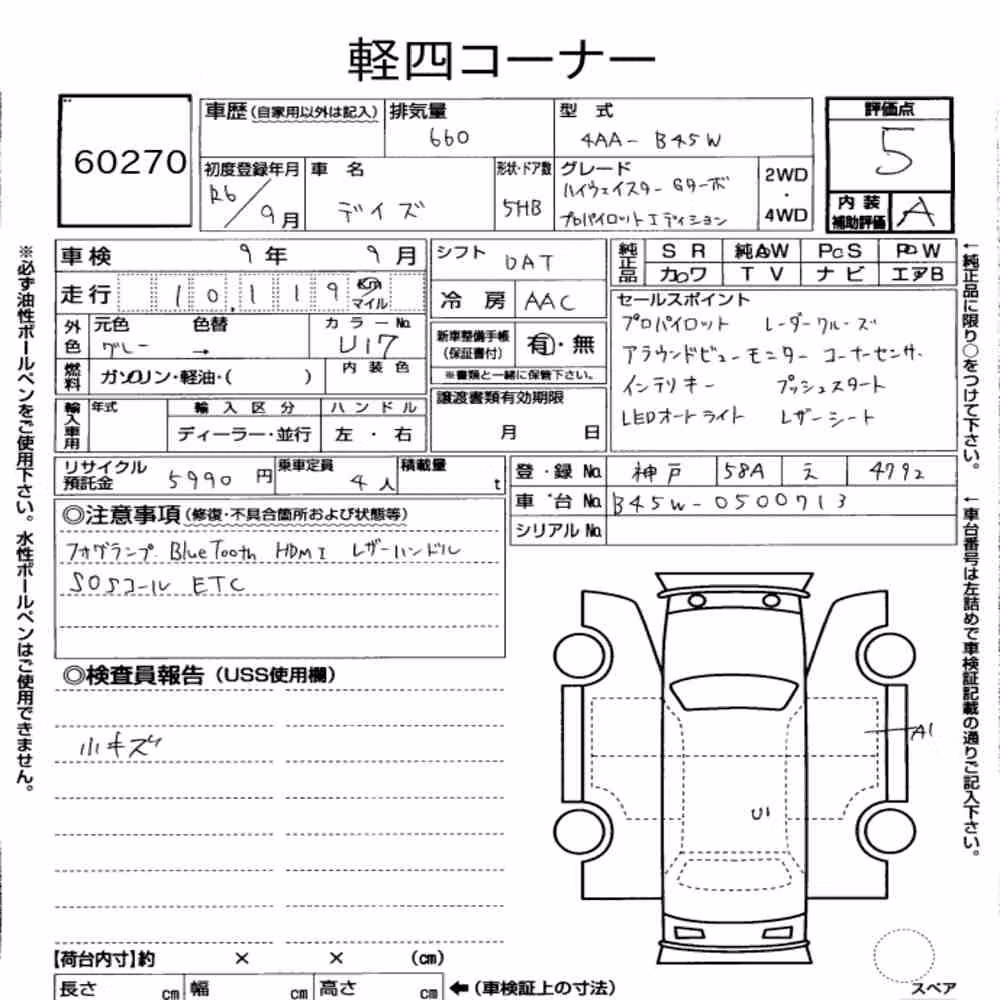 軽四コーナー
60270
車歴(自家用以外は記入) 排気量 660 型式 4AA-B45W
評価点 5
初度登録年月 R6/9月 車名 デイズ 形状・ドア数 5HB
グレード ハイウェイスター Gターボ
プロパイロットエディション
2WD・4WD
内装補助評価 A
車検 9年 9月
走行 10,119 Km マイル
シフト DAT
冷房 AAC
純正品 SR 純AW PS PW
カワ TV ナビ エアB
外色 元色 グレー 色替 → カラーNo. U17
燃料 ガソリン・軽油・( ) 内装色
新車整備手帳(保証書付) 有・無
※書類と一緒に保管下さい。
セールスポイント
プロパイロット レーダークルーズ
アラウンドビューモニター コーナーセンサ
インテリキー プッシュスタート
LEDオートライト レザーシート
輸入車用 年式 輸入区分 ハンドル
ディーラー・並行 左・右
譲渡書類有効期限
月 日
リサイクル預託金 5990円 乗車定員 4人 積載量 t
登録No. 神戸 58A え 4792
車台No. B45W-0500713
シリアルNo.
◎注意事項(修復・不具合箇所および状態等)
フォグランプ BlueTooth HDMI レザーハンドル
SOSコール ETC
◎検査員報告(USS使用欄)
小キズ
A1
U1
【荷台内寸】約 × × (cm)
長さ cm 幅 cm 高さ cm ←(車検証上の寸法)
スペア
※必ず油性ボールペンをご使用下さい。水性ボールペンはご使用できません。
←純正品に限り○をつけて下さい。
←車台番号は左詰めで車検証記載の通りご記入下さい。